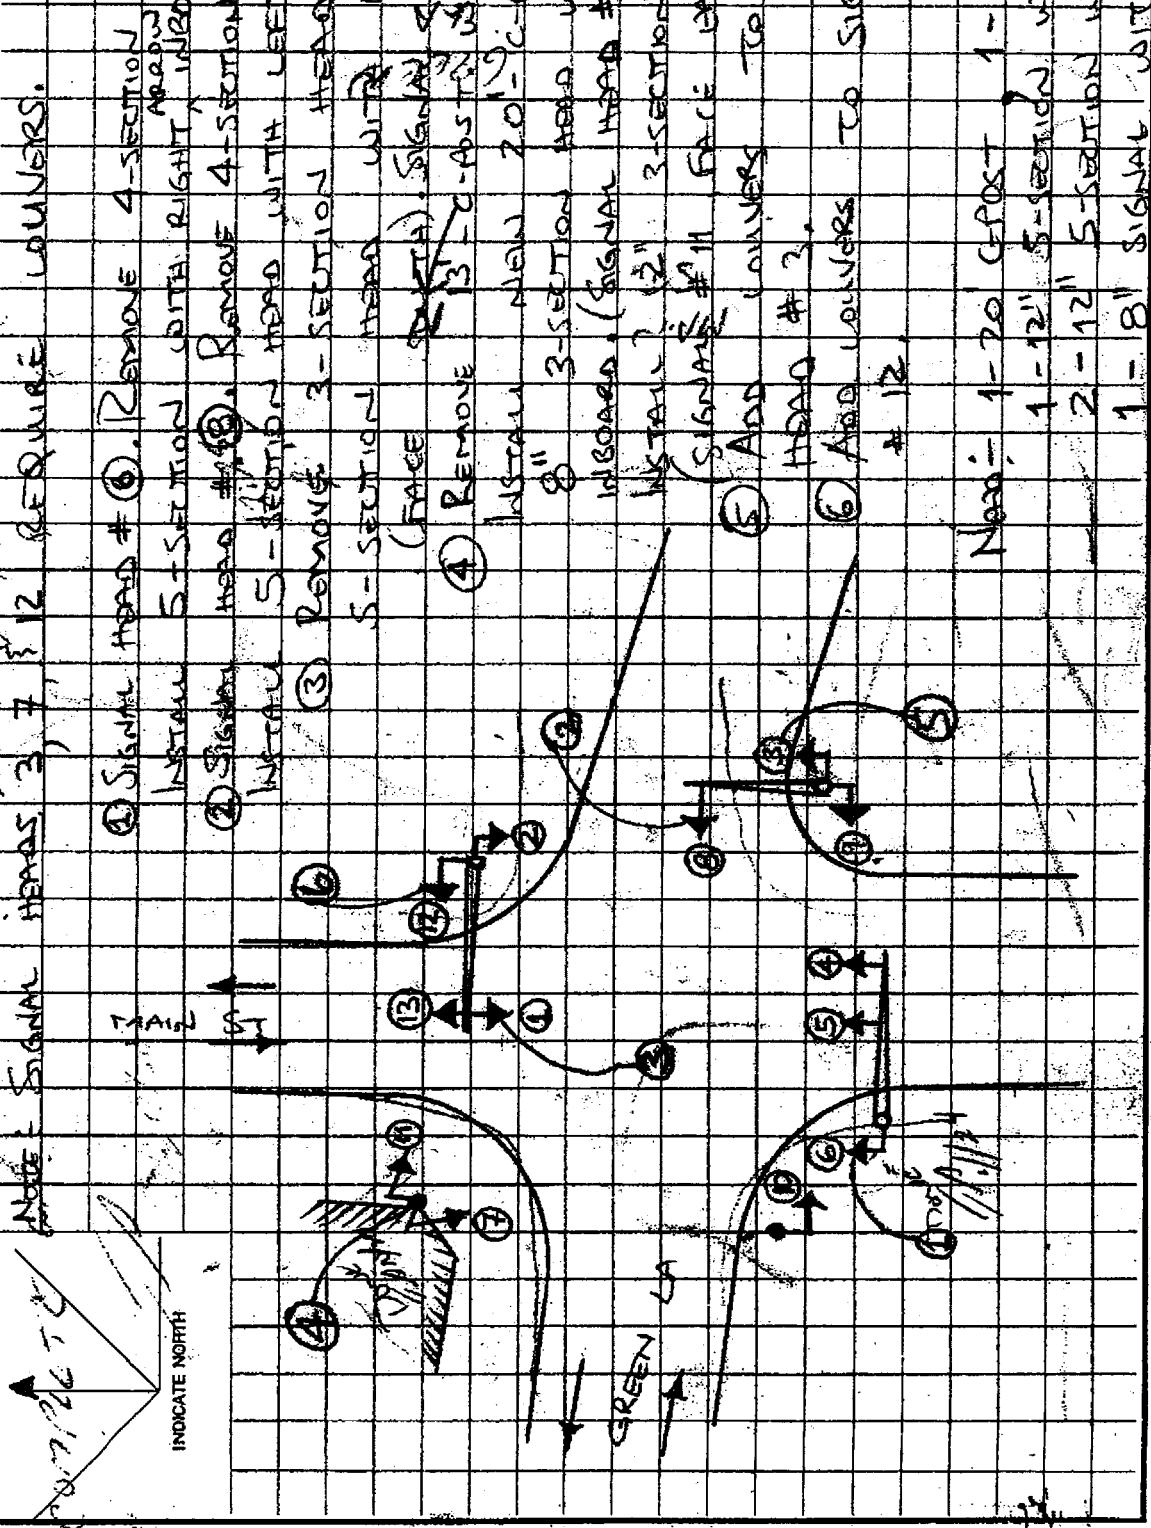 NOTE: SIGNAL HEADS 3, 7, & 12 REQUIRE LOUVERS.
① SIGNAL HEAD # ⑥. REMOVE 4-SECTION
ARROW
INSTALL 5-SECTION WITH RIGHT ^ INBO
② SIGNAL HEAD # ⑧. REMOVE 4-SECTION
INSTALL 5-SECTION HEAD WITH LEF
③ REMOVE 3-SECTION HEAD
5-SECTION HEAD WITH
(FACE SOUTH). SIGNAL
④ REMOVE 13'
INSTALL NEW 20'
8" 3-SECTION HEAD
INBOARD. (SIGNAL HEAD #
INSTALL 12" 3-SECTION
SIGNAL #11 FACE
⑤ ADD LOUVERS TO
HEAD # 3.
⑥ ADD LOUVERS TO SIG
# 12.
NEED:- 1-20' C-POST 1-
1-12" 5-SECTION
2-12" 5-SECTION
1-8" SIGNAL WIT
COMPLETE
INDICATE NORTH
MAIN ST
GREEN LA
①
②
③
④
⑤
⑥
⑦
⑧
⑨
⑩
⑪
⑫
⑬
①
②
③
④
⑤
⑥